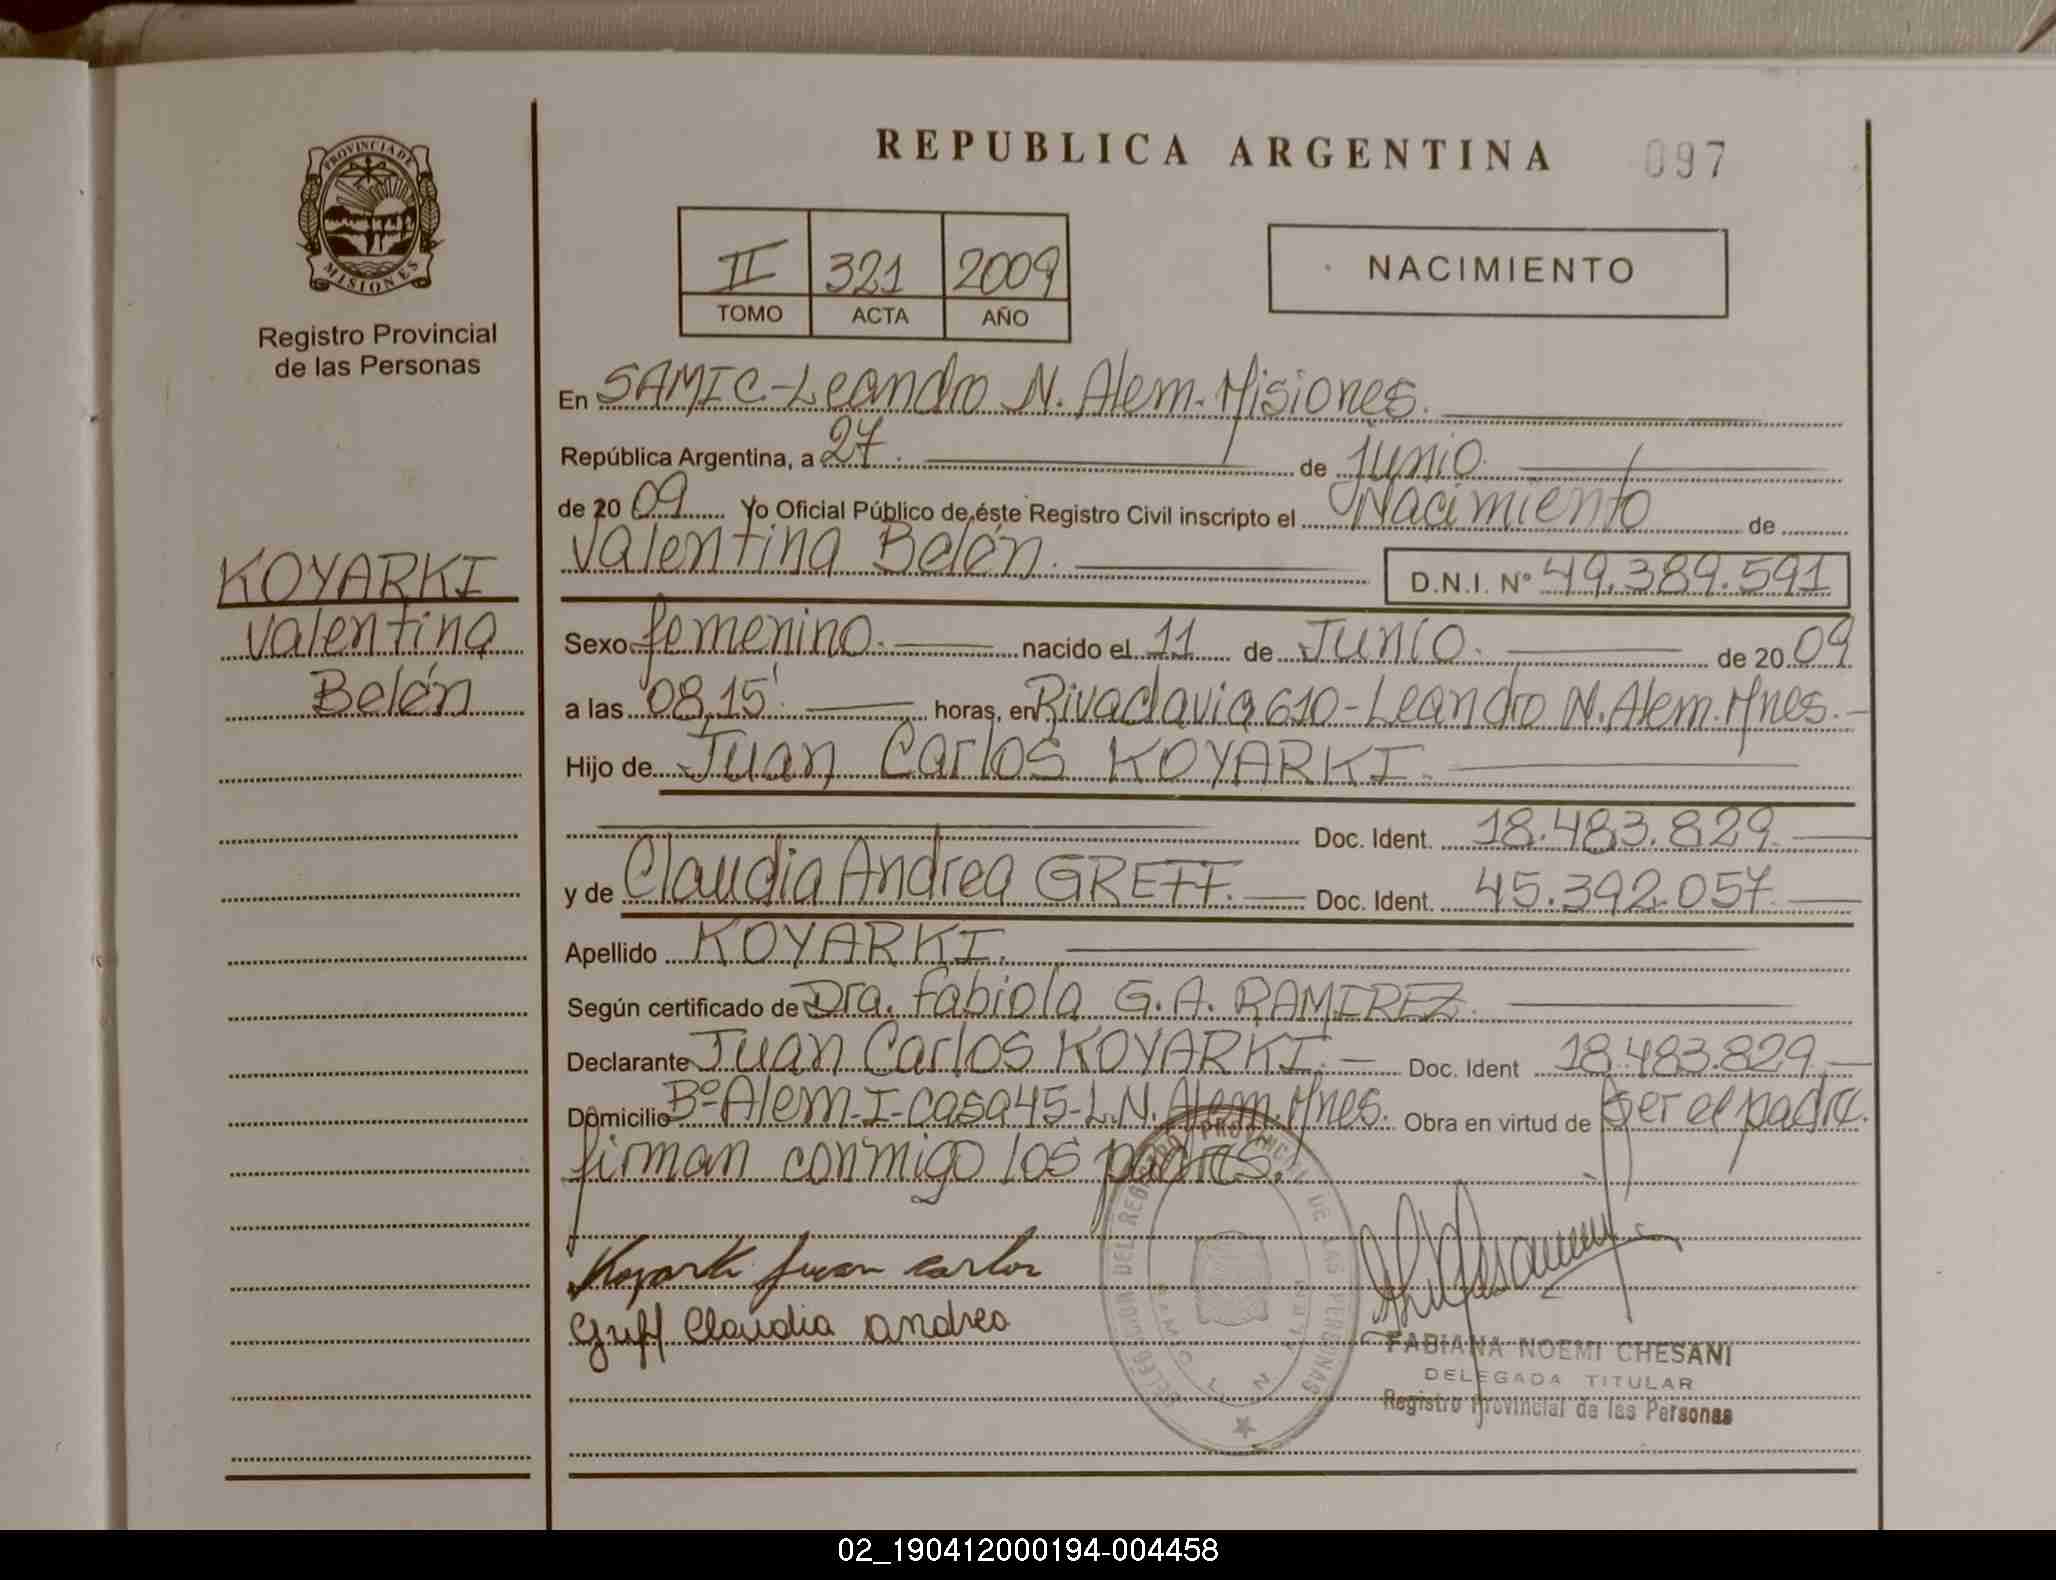 REPUBLICA ARGENTINA 097
PROVINCIA DE
MISIONES
Registro Provincial
de las Personas
II 321 2009
TOMO ACTA AÑO
NACIMIENTO
En SAMIC-Leandro N. Alem-Misiones.
República Argentina, a 27. de Junio.
de 2009 Yo Oficial Público de éste Registro Civil inscripto el Nacimiento de
Valentina Belén. D.N.I. Nº 49.389.591
KOYARKI
Valentina
Belén
Sexo femenino. nacido el 11 de Junio. de 2009
a las 08,15' horas, en Rivadavia 610-Leandro N. Alem. Mnes.-
Hijo de Juan Carlos KOYARKI.
Doc. Ident. 18.483.829
y de Claudia Andrea GREFF. Doc. Ident. 45.392.057
Apellido KOYARKI.
Según certificado de Dra. Fabiola G.A. RAMIREZ.
Declarante Juan Carlos KOYARKI.- Doc. Ident 18.483.829
Domicilio Bº Alem-I-casa45-L.N. Alem. Mnes. Obra en virtud de ser el padre.
firman conmigo los padres.
Koyarki Juan Carlos
Greff Claudia Andrea
DELEGACION DEL REGISTRO PROVINCIAL DE LAS PERSONAS
FABIANA NOEMI CHESANI
DELEGADA TITULAR
Registro Provincial de las Personas
02_190412000194-004458